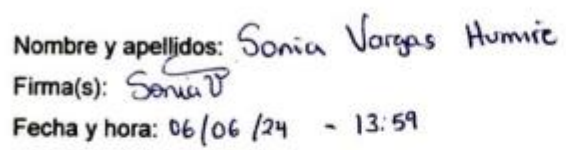 Nombre y apellidos: Sonia Vargas Humire
Firma(s): Sonia V
Fecha y hora: 06/06/24 - 13:59